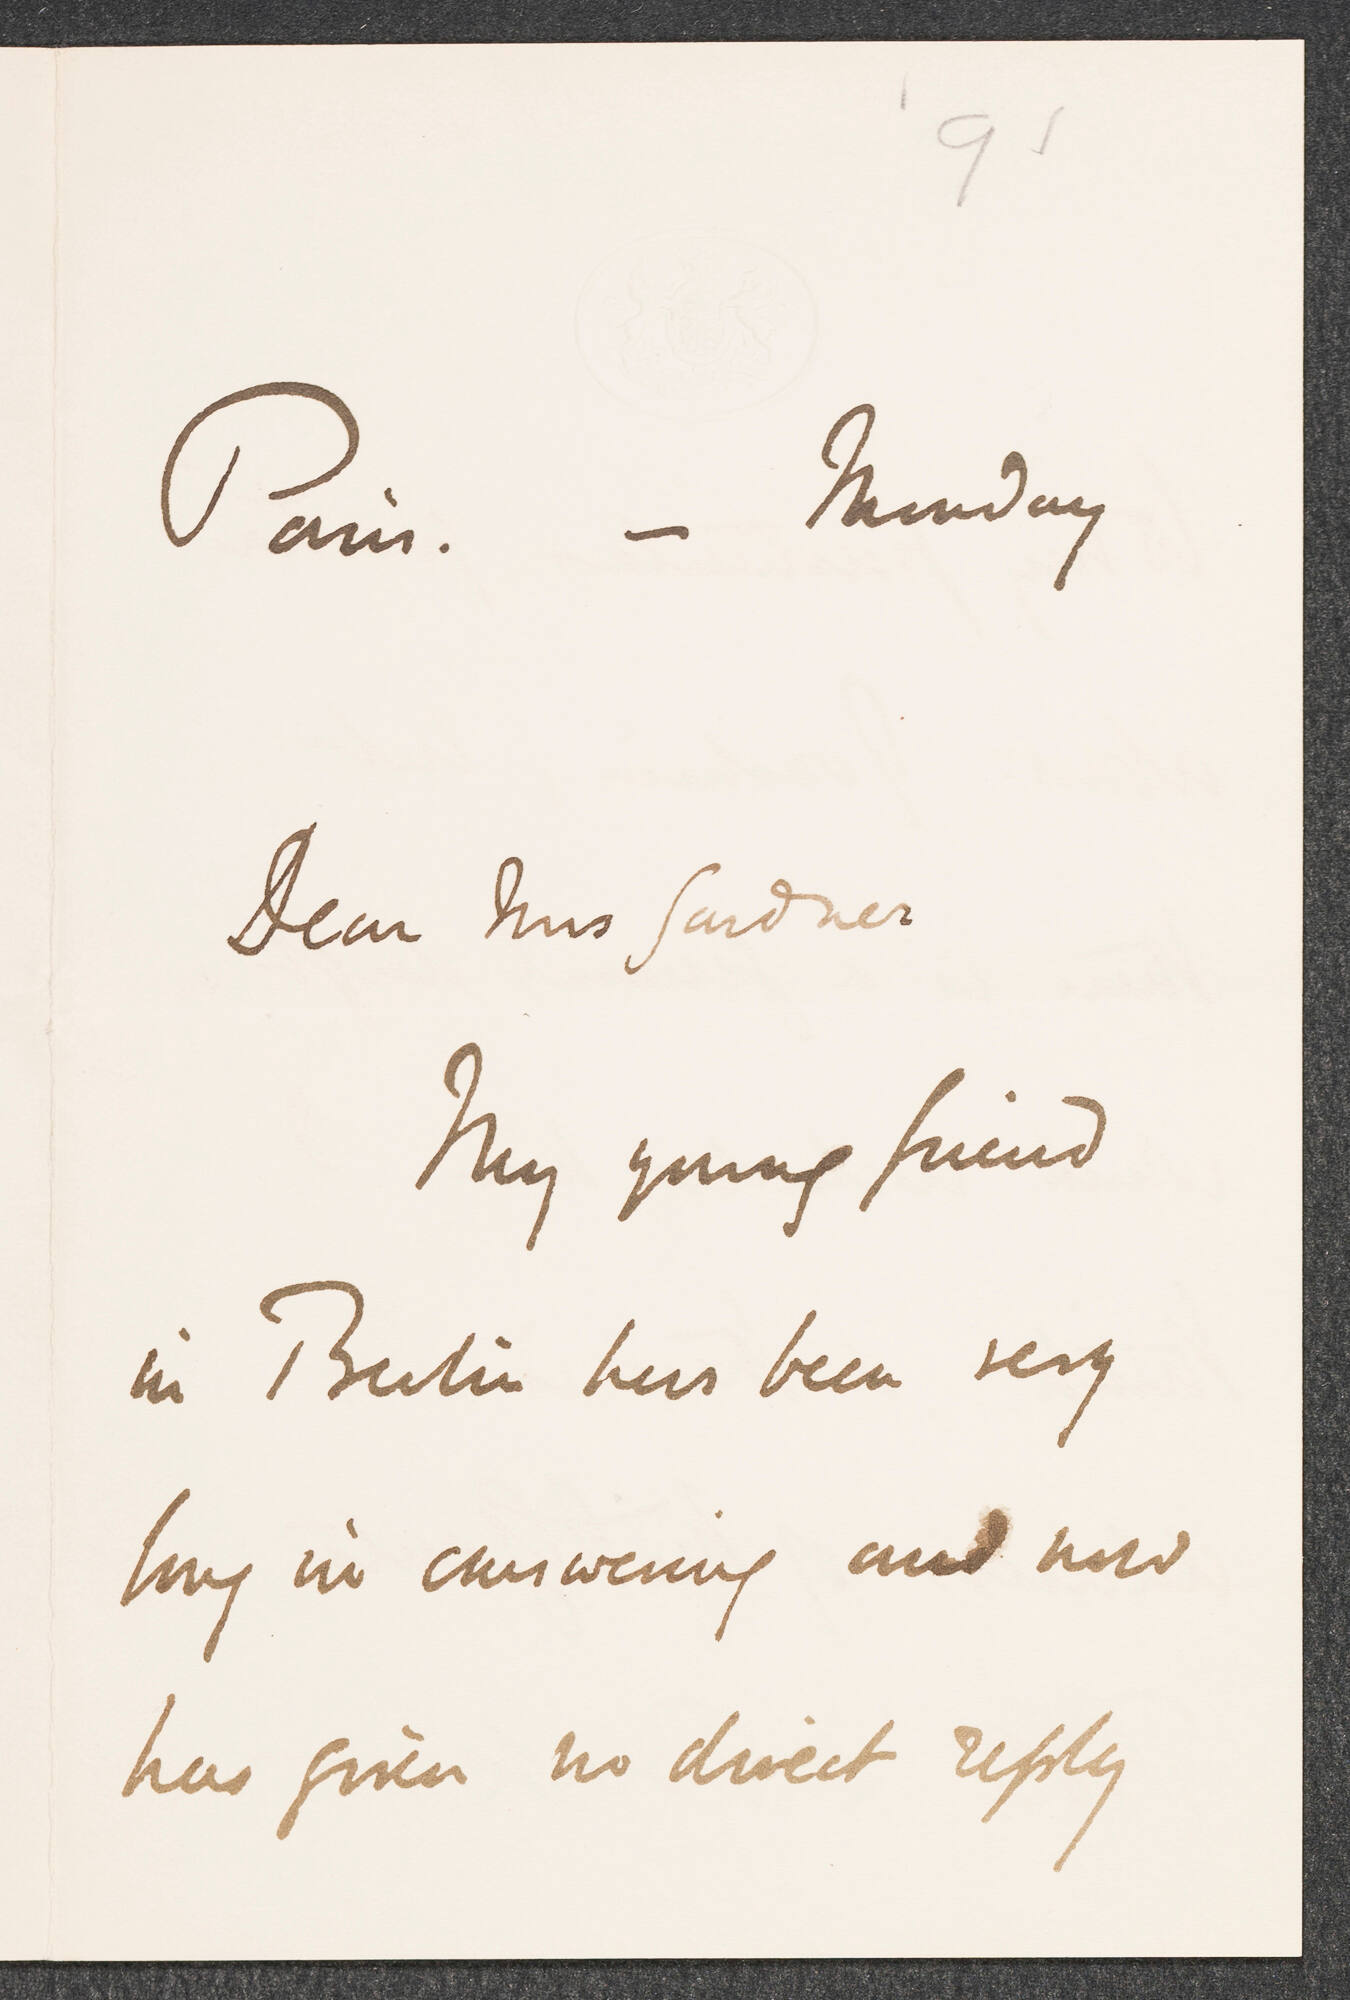 '91
Paris. — Monday
Dear Mrs Gardner
My young friend
in Berlin has been very
long in answering and now
has given no direct reply